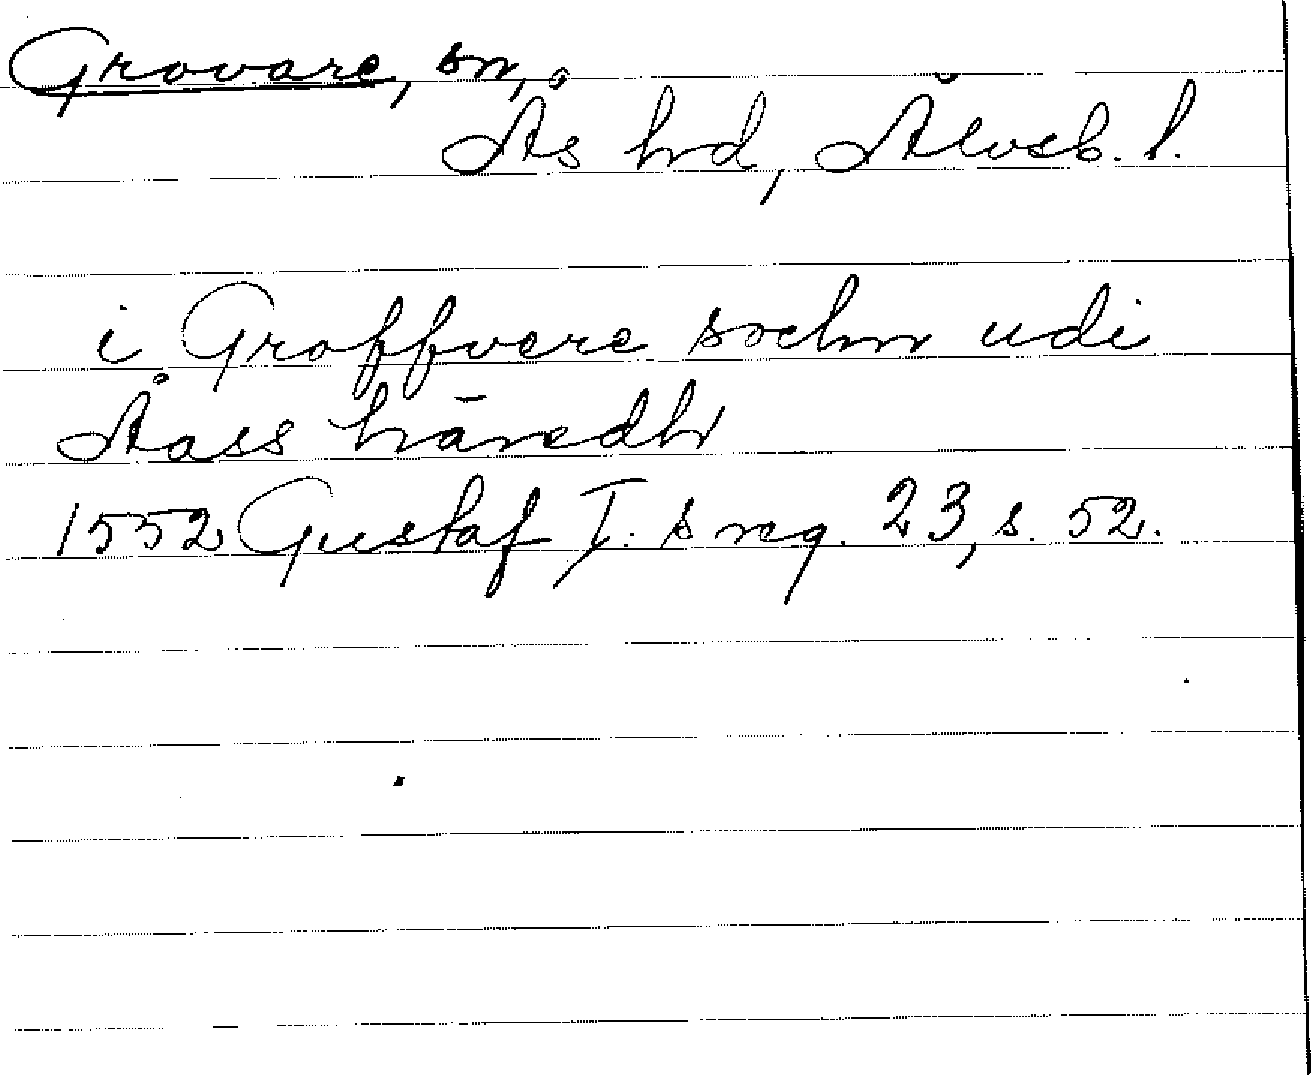 Grovare, sn,
Ås hd, Älvsb. l.
i Groffvere sochn udi
Åass häredh
1552 Gustaf I:s reg. 23, s. 52.